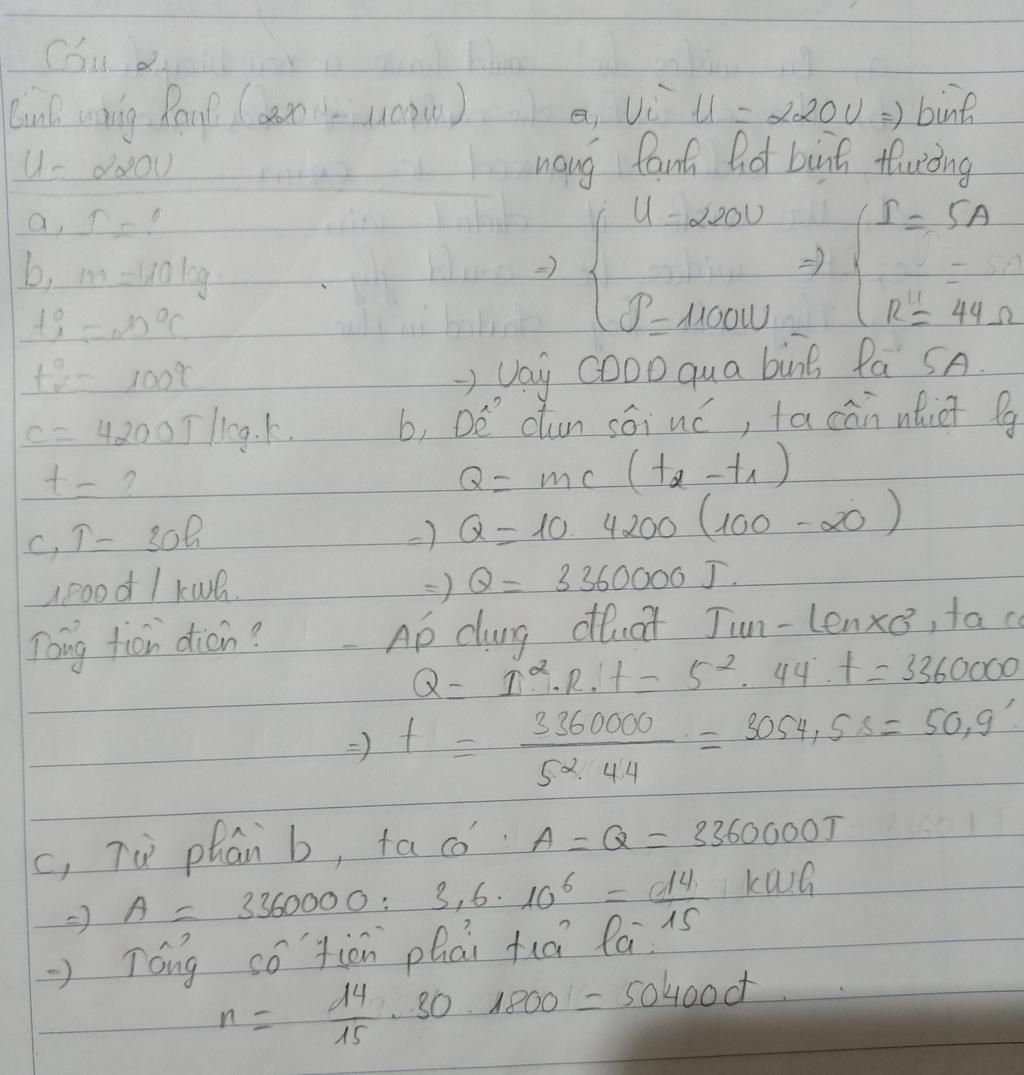 Câu 2
Bình nóng lạnh (220V - 1100W)
U = 220V
a, I = ?
b, m = 10kg
t°₁ = 20°C
t°₂ = 100°C
c = 4200J/kg.k.
t = ?
c, T = 30h
1800đ / kwh.
Tổng tiền điện?
a, Vì U = 220V => bình
nóng lạnh hđ bình thường
=> { U = 220V => { I = 5A
P = 1100W R = 44Ω
-> Vậy CDDD qua bình là 5A.
b, Để đun sôi nc, ta cần nhiệt lg
Q = mc (t2 - t1)
=> Q = 10. 4200 (100 - 20)
=> Q = 3360000 J.
- Áp dụng đluật Jun - lenxơ, ta có
Q = I².R.t = 5². 44 . t = 3360000
=> t = 3360000 / 5². 44 = 3054,5 s = 50,9'
c, Từ phần b, ta có : A = Q = 3360000J
=> A = 3360000 : 3,6 . 10⁶ = 14/15 kwh
=> Tổng số tiền phải trả là:
n = 14/15 . 30 . 1800 = 50400đ